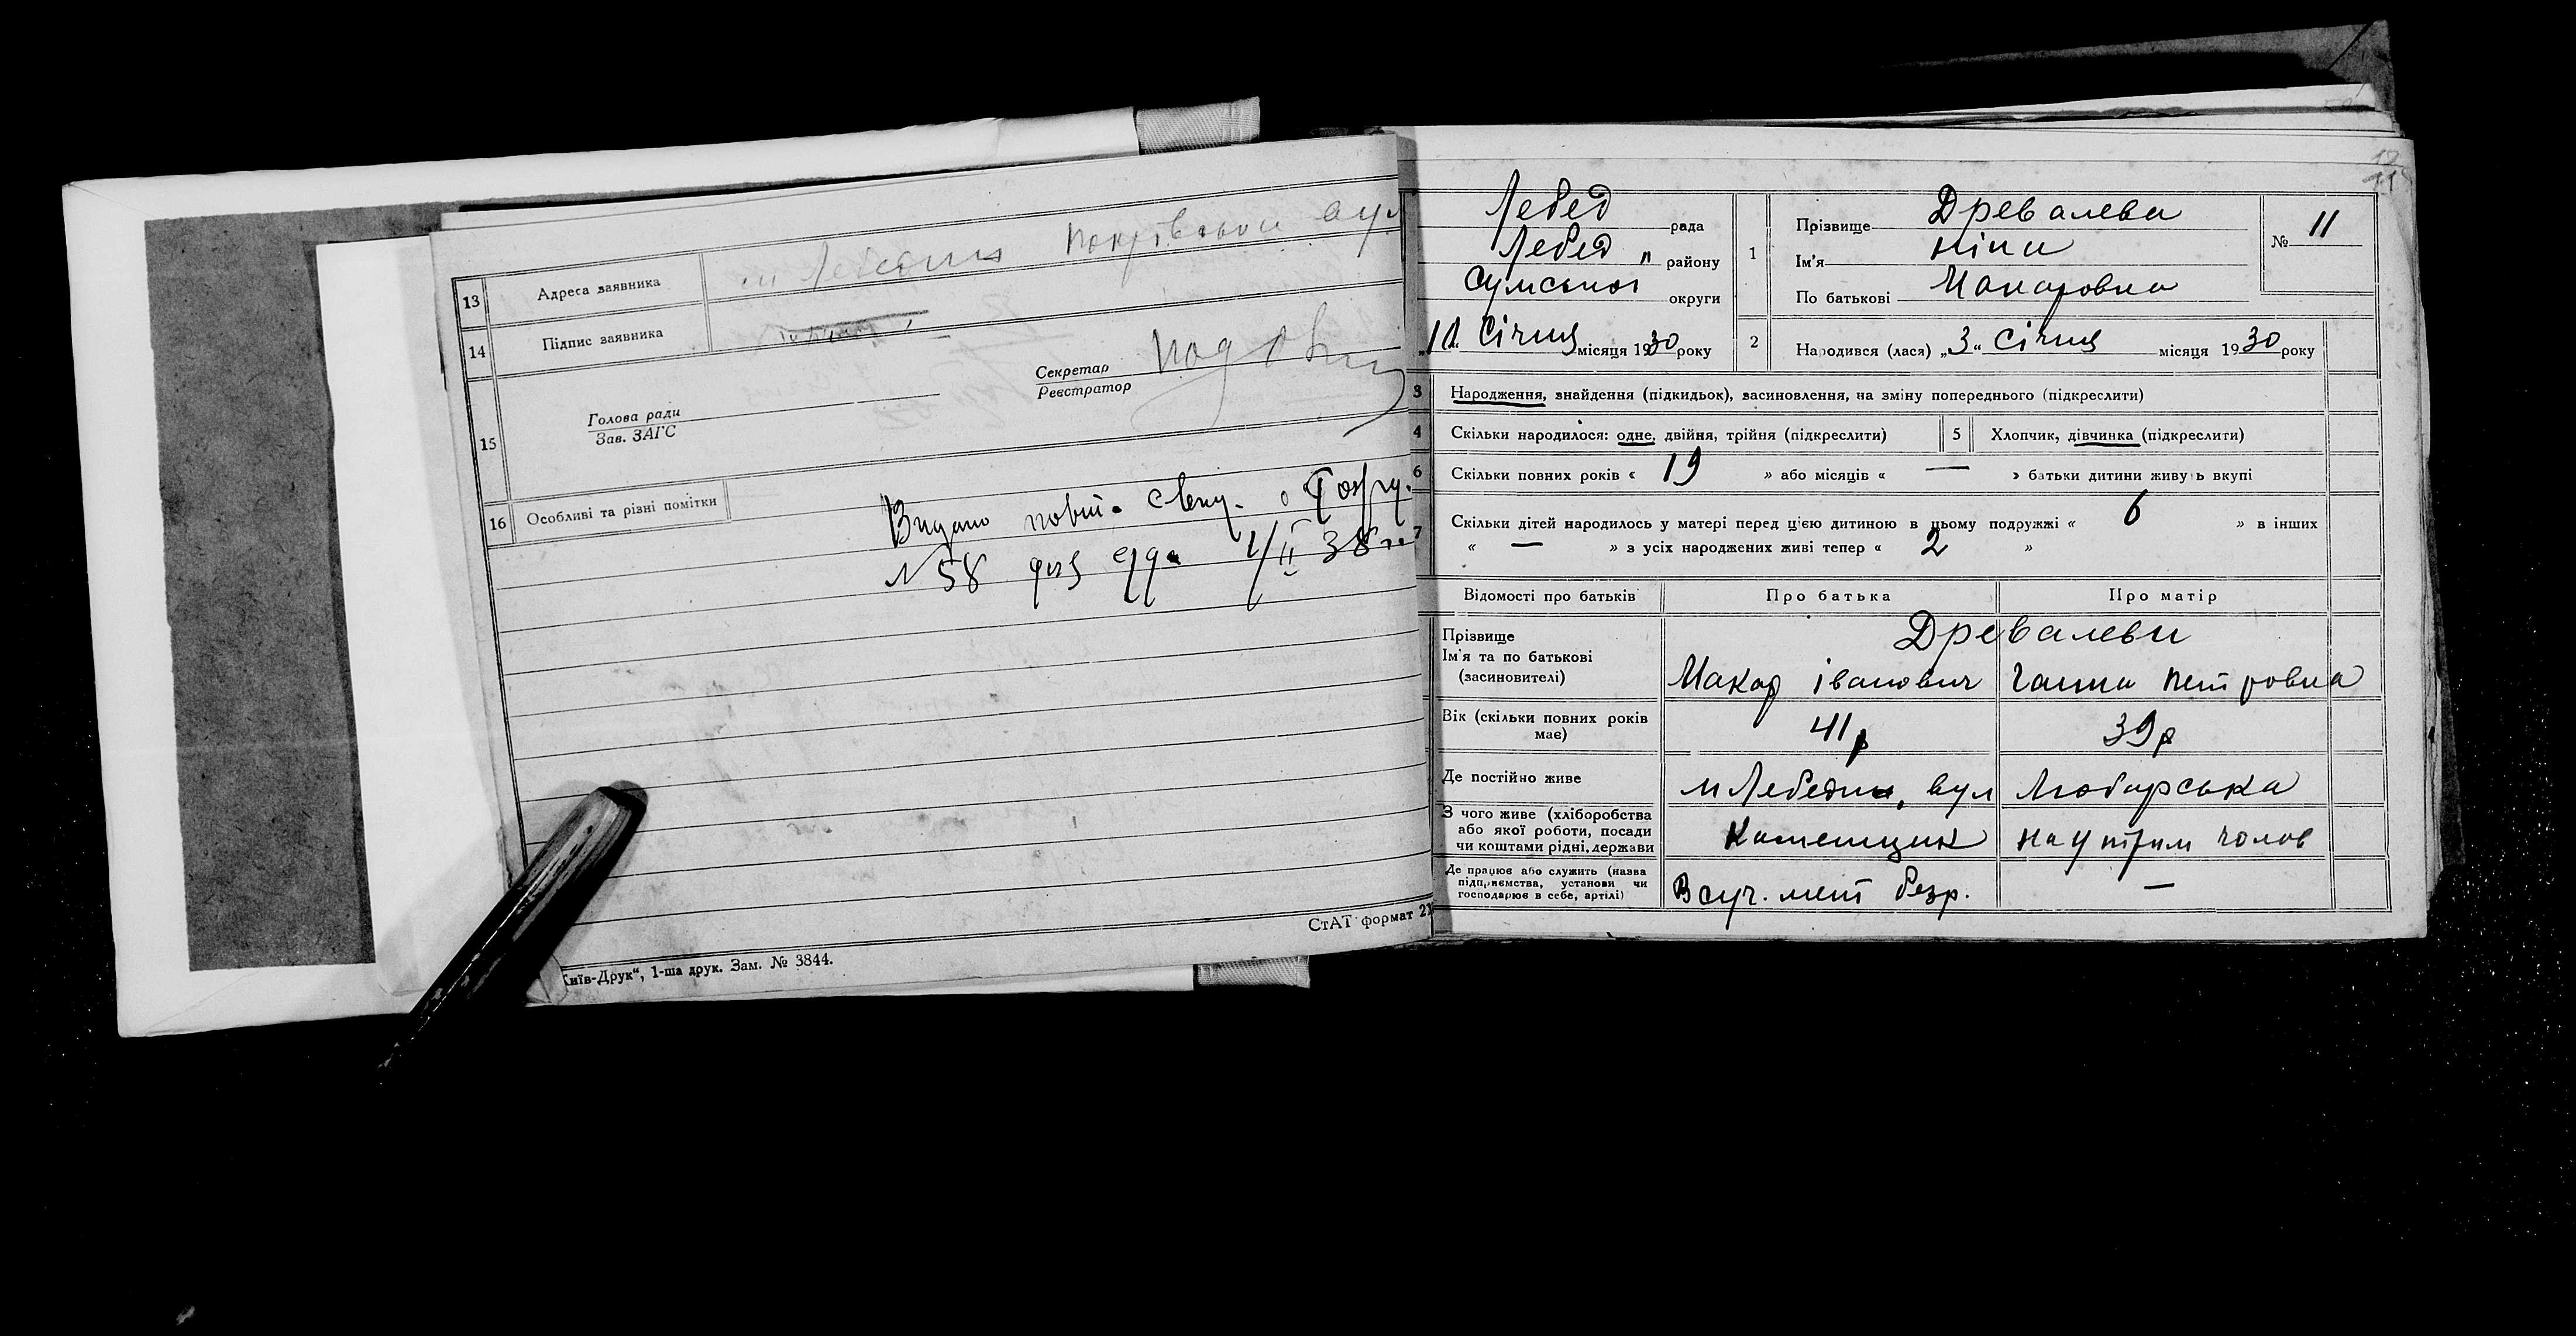 13 Адреса заявника м Лебедин Покрівська вул
14 Підпис заявника
15 Голова ради
Зав. ЗАГС
Секретар
Реєстратор
16 Особливі та різні помітки
Видано повт.
N 58 для 1/II 38 г.
СтАТ формат
Київ-Друк“, 1-ша друк. Зам. № 3844.
Лебед рада
Лебед " району
Сумської округи
„11“ Січня місяця 1930 року
1 Прізвище Древалева
Ім'я Ніна
По батькові Макаровна
№ 11
2 Народився (лася) „3“ Січня місяця 1930 року
3 Народження, знайдення (підкидьок), засиновлення, на зміну попереднього (підкреслити)
4 Скільки народилося: одне, двійня, трійня (підкреслити) 5 Хлопчик, дівчинка (підкреслити)
6 Скільки повних років « 19 » або місяців « — » батьки дитини живуть вкупі
7 Скільки дітей народилось у матері перед цією дитиною в цьому подружжі « 6 » в інших
« — » з усіх народжених живі тепер « 2 »
Відомості про батьків Про батька Про матір
Прізвище Древалеви
Ім'я та по батькові
(засиновителі) Макар Іванович Ганна Петровна
Вік (скільки повних років
має) 41 р 39 р
Де постійно живе м Лебедин, вул Любарська
З чого живе (хліборобства
або якої роботи, посади
чи коштами рідні, держави Каменщик на утрим чолов
Де працює або служить (назва
підприємства, установи чи
господарює в себе, артілі) В суч. мент безр. —